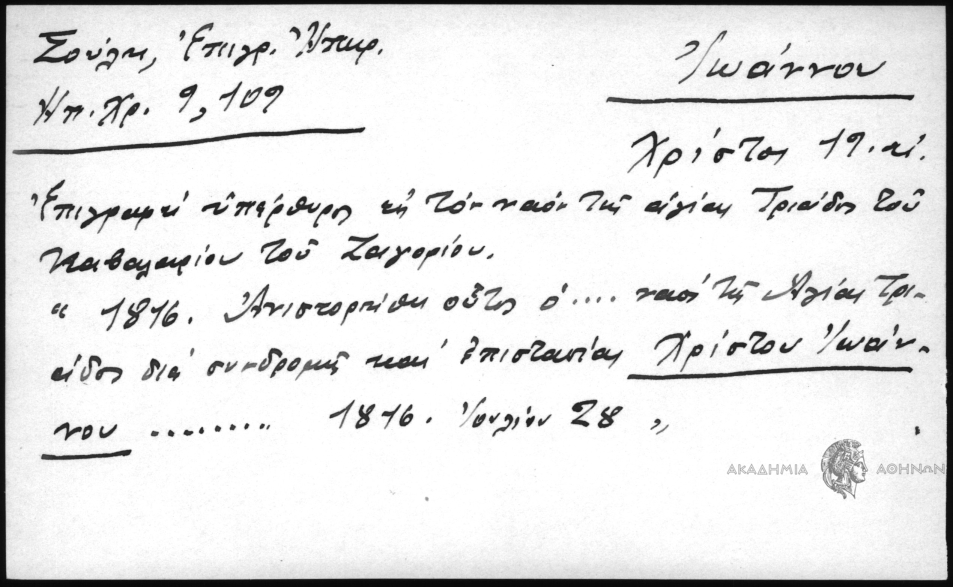 Σούλη, Ἐπιγρ. Ἠπειρ.
Ἰωάννου
Ἠπ. Χρ. 9, 109
Χρίστος 19. αἰ.
Ἐπιγραφὴ ὑπέρθυρος εἰς τὸν ναὸν τῆς ἁγίας Τριάδος τοῦ
Καβαλαρίου τοῦ Ζαγορίου.
“ 1816. Ἀνιστορήθη οὗτος ὁ .... ναὸς τῆς Ἁγίας Τρι-
άδος διὰ συνδρομῆς καὶ ἐπιστασίας Χρίστου Ἰωάν-
νου ......... 1816. Ἰουλίου 28 „
ΑΚΑΔΗΜΙΑ ΑΘΗΝΩΝ